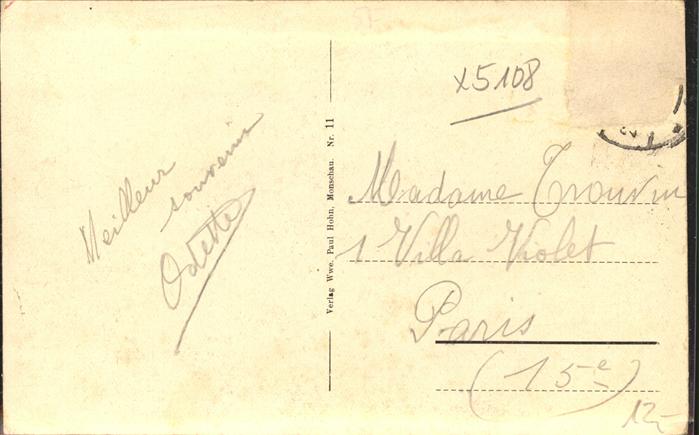 Meilleur
souvenir
Odette
Verlag Wwe. Paul Hohn, Monschau. Nr. 11
x5108
Madame Trouvin
1 Villa Violet
Paris
(15e)
12,-